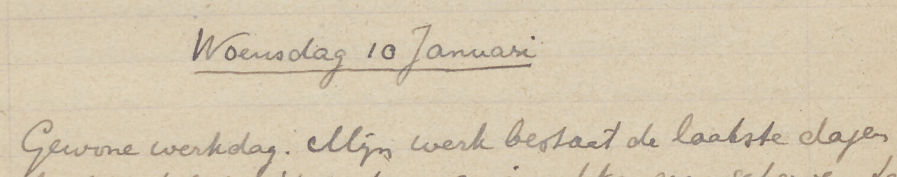 Woensdag 10 Januari
Gewone werkdag. Mijn werk bestaat de laatste dagen